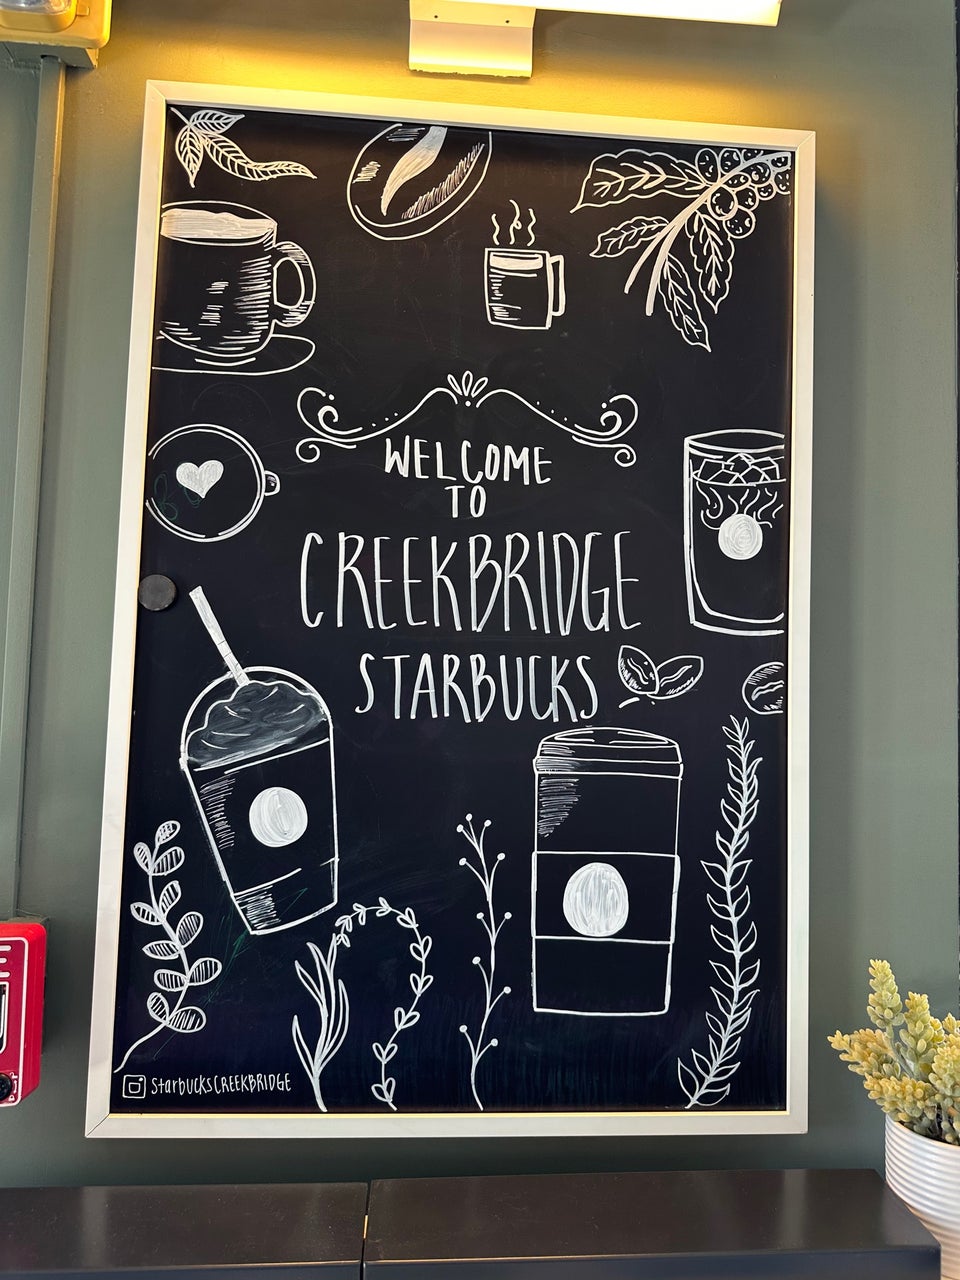 WELCOME
TO
CREEKBRIDGE
STARBUCKS
StarbucksCREEKBRIDGE